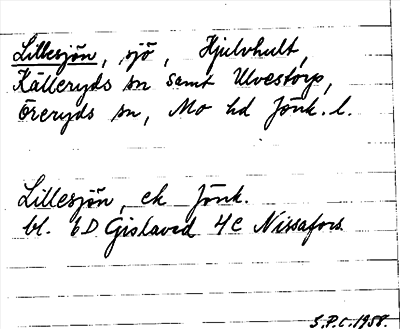 Lillesjön, sjö, Hjulvhult,
Källeryds sn samt Ulvestorp,
Öreryds sn, Mo hd Jönk. l.
Lillesjön, ek Jönk.
bl. 6D Gislaved 4c Nissafors
S.P.C. 1958.